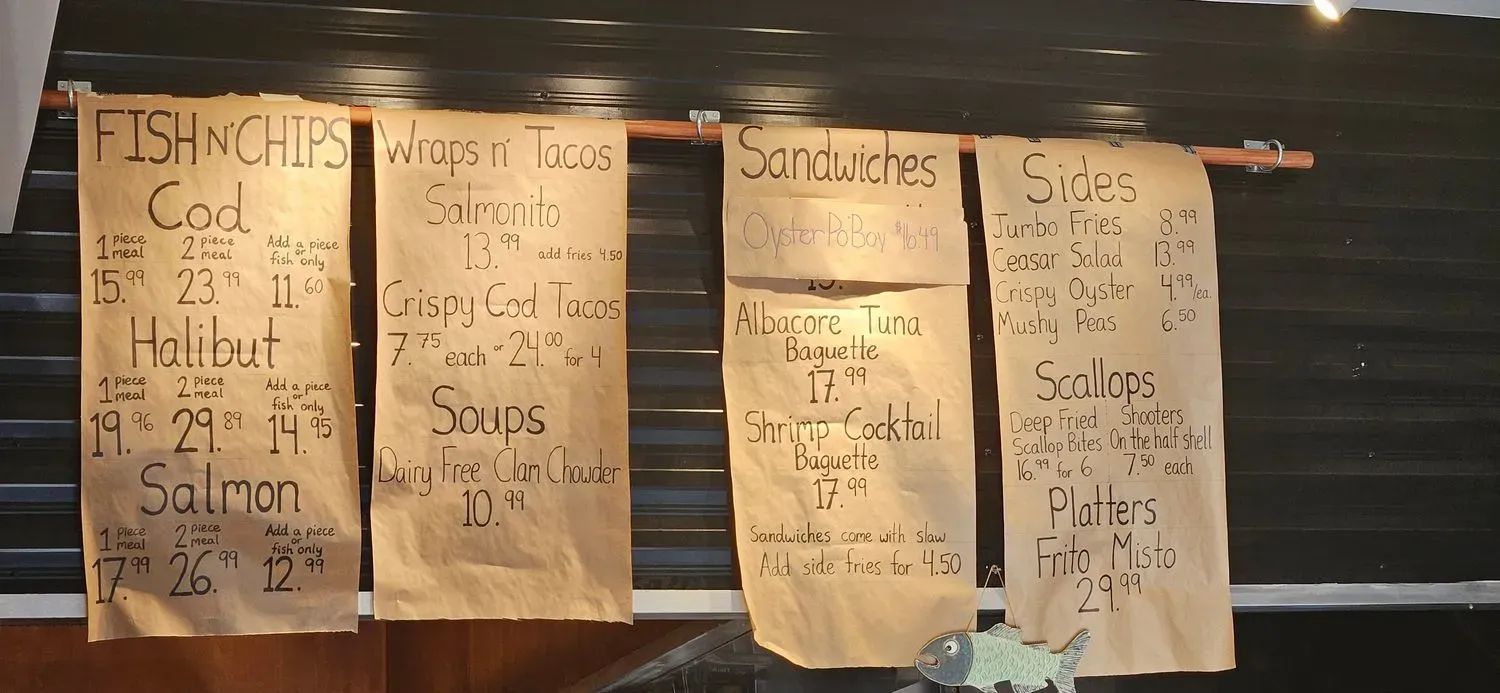 FISH N' CHIPS
Cod
1 piece meal 2 piece meal Add a piece or fish only
15.99 23.99 11.60
Halibut
1 Piece meal 2 Piece meal Add a piece or fish only
19.96 29.89 14.95
Salmon
1 Piece meal 2 Piece meal Add a piece or fish only
17.99 26.99 12.99
Wraps n' Tacos
Salmonito
13.99 add fries 4.50
Crispy Cod Tacos
7.75 each or 24.00 for 4
Soups
Dairy Free Clam Chowder
10.99
Sandwiches
Oyster Po'Boy $16.49
Albacore Tuna
Baguette
17.99
Shrimp Cocktail
Baguette
17.99
Sandwiches come with slaw
Add side fries for 4.50
Sides
Jumbo Fries 8.99
Ceasar Salad 13.99
Crispy Oyster 4.99/ea.
Mushy Peas 6.50
Scallops
Deep Fried Scallop Bites
16.99 for 6
Shooters
On the half shell
7.50 each
Platters
Frito Misto
29.99